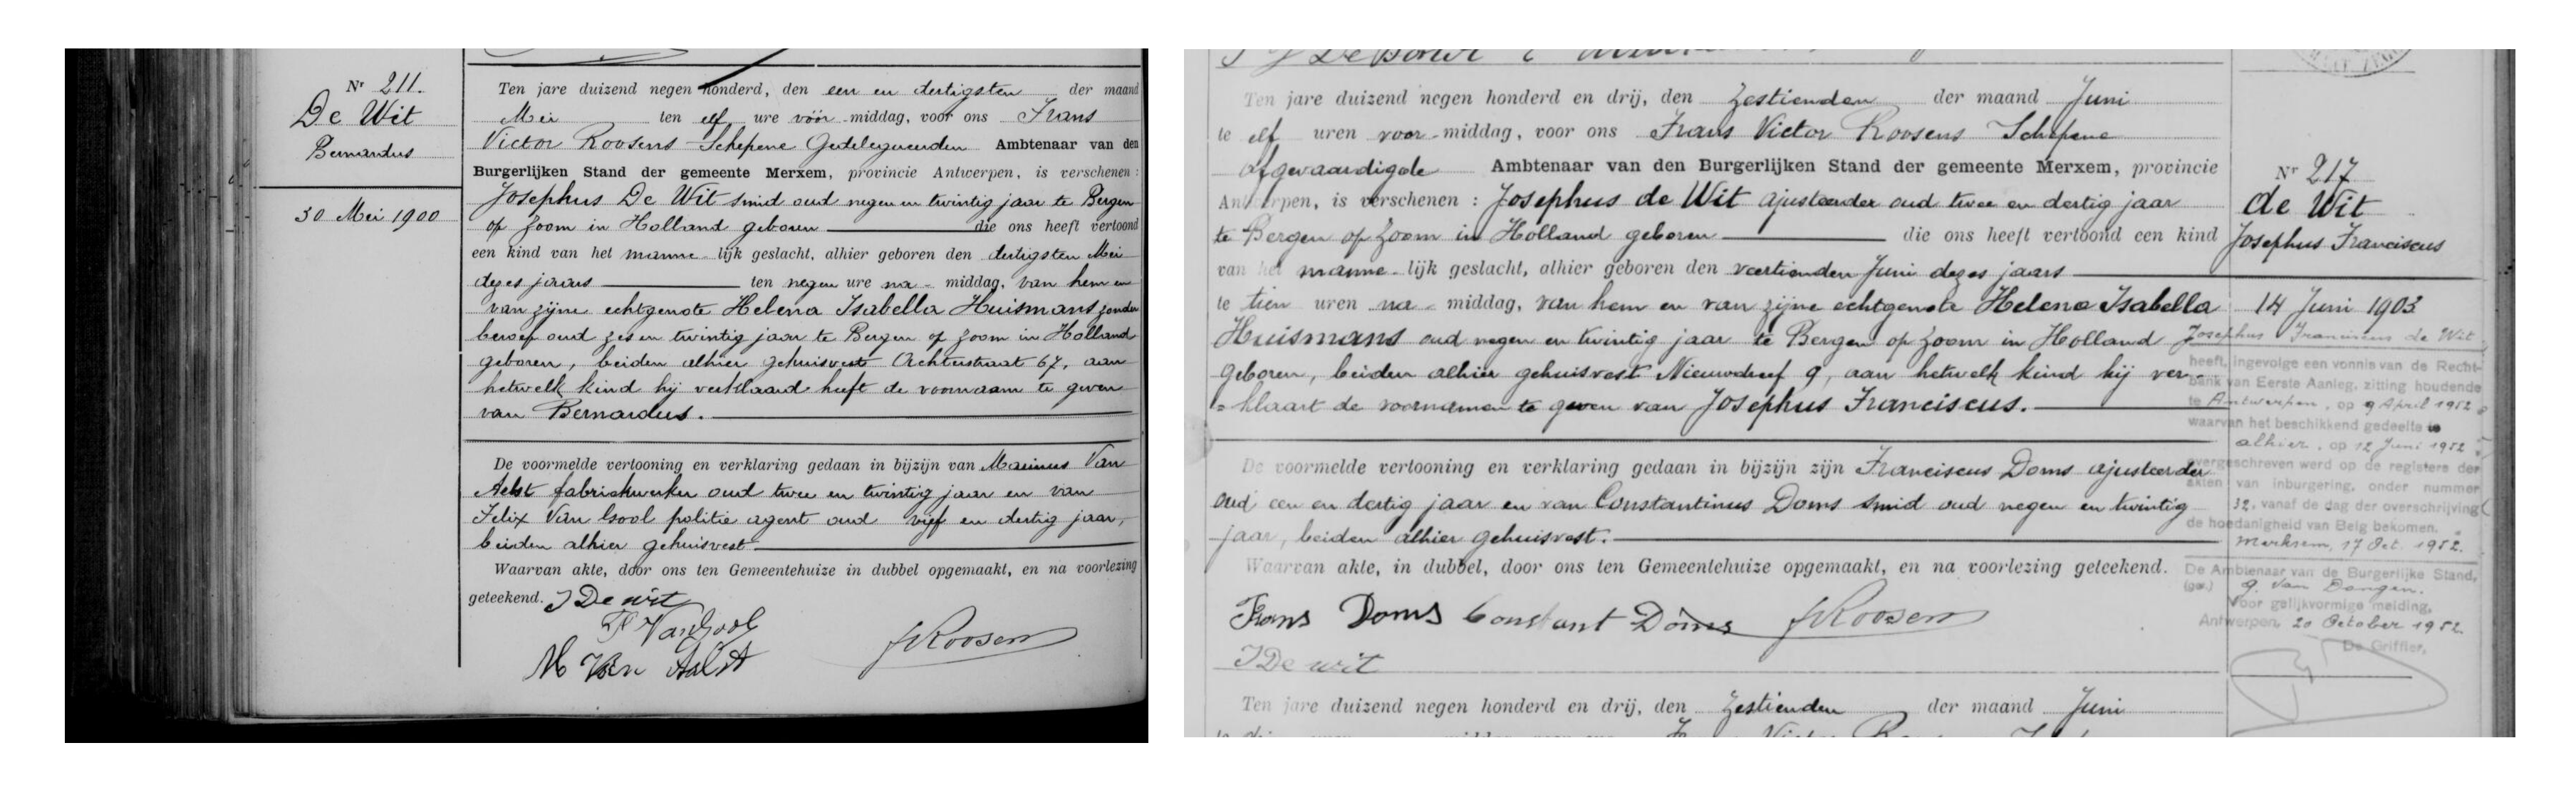 Nr 211.
De Wit
Bernardus
30 Mei 1900
Ten jare duizend negen honderd, den een en dertigsten der maand
Mei ten elf ure vóór-middag, voor ons Frans
Victor Roosens Schepene Gedelegueerden Ambtenaar van den
Burgerlijken Stand der gemeente Merxem, provincie Antwerpen, is verschenen:
Josephus De Wit smid oud negen en twintig jaar te Bergen
op Zoom in Holland geboren die ons heeft vertoond
een kind van het manne-lijk geslacht, alhier geboren den dertigsten Mei
dezes jaars ten negen ure na-middag, van hem en
van zijne echtgenote Helena Isabella Huismans zonder
beroep oud zes en twintig jaar te Bergen op Zoom in Holland
geboren, beiden alhier gehuisvest Achterstraat 67, aan
hetwelk kind hij verklaard heeft de voornaam te geven
van Bernardus.
De voormelde vertooning en verklaring gedaan in bijzijn van Marinus Van
Aelst fabriekwerker oud twee en twintig jaar en van
Felix Van Gool politie agent oud vijf en dertig jaar,
beiden alhier gehuisvest.
Waarvan akte, door ons ten Gemeentehuize in dubbel opgemaakt, en na voorlezing
geteekend. J De wit
F VanGool
M Van Aalst
Roosens
Ten jare duizend negen honderd en drij, den zestienden der maand Juni
te elf uren voor-middag, voor ons Frans Victor Roosens Schepene
afgevaardigde Ambtenaar van den Burgerlijken Stand der gemeente Merxem, provincie
Antwerpen, is verschenen: Josephus de Wit ajusteerder oud twee en dertig jaar
te Bergen op Zoom in Holland geboren die ons heeft vertoond een kind
van het manne-lijk geslacht, alhier geboren den veertienden Juni dezes jaars
te tien uren na-middag, van hem en van zijne echtgenote Helena Isabella
Huismans oud negen en twintig jaar te Bergen op Zoom in Holland
geboren, beiden alhier gehuisvest Nieuwdreef 9, aan hetwelk kind hij ver-
=klaart de voornamen te geven van Josephus Franciscus.
De voormelde vertooning en verklaring gedaan in bijzijn zijn Franciscus Doms ajusteerder
oud een en dertig jaar en van Constantinus Doms smid oud negen en twintig
jaar, beiden alhier gehuisvest.
Waarvan akte, in dubbel, door ons ten Gemeentehuize opgemaakt, en na voorlezing geteekend.
Frans Doms Constant Doms Roosens
J De wit
Ten jare duizend negen honderd en drij, den zestienden der maand Juni
Nr 217
de Wit
Josephus Franciscus
14 Juni 1903
Josephus Franciscus de Wit
heeft, ingevolge een vonnis van de Recht-
bank van Eerste Aanleg, zitting houdende
te Antwerpen, op 9 April 1952
waarvan het beschikkend gedeelte
alhier, op 12 Juni 1952
overgeschreven werd op de registers der
akten van inburgering, onder nummer
32, vanaf de dag der overschrijving
de hoedanigheid van Belg bekomen.
Merksem, 17 Oct. 1952.
De Ambtenaar van de Burgerlijke Stand,
(get.) G. Van Dongen.
Voor gelijkvormige melding,
Antwerpen, 20 October 1952
De Griffier,